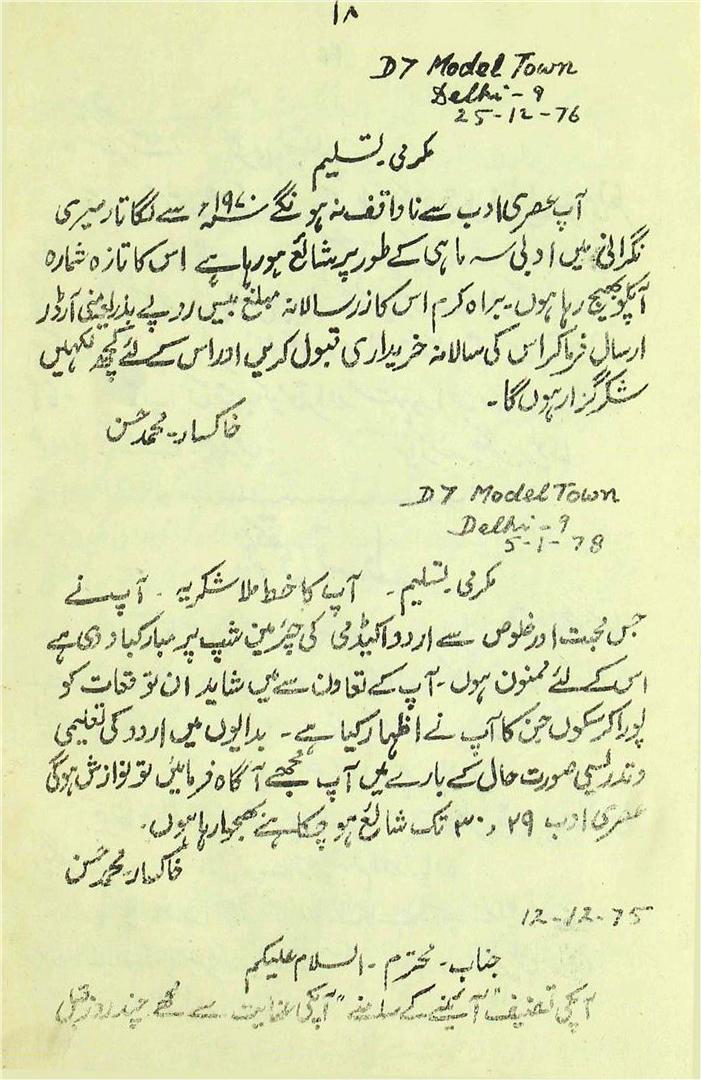 ۱۸
D7 Model Town
Delhi-9
25-12-76
مکرمی۔ تسلیم
آپ عصری ادب سے ناواقف نہ ہونگے سنہ ۱۹۷۰ء سے لگاتار میری
نگرانی میں ادبی سہ ماہی کے طور پر شائع ہو رہا ہے اس کا تازہ شمارہ
آپکو بھیج رہا ہوں۔ براہ کرم اس کا زر سالانہ مبلغ بیس روپے بذریعہ منی آرڈر
ارسال فرما کر اس کی سالانہ خریداری قبول کریں اور اس کے لئے کچھ لکھیں
شکر گزار ہوں گا۔
خاکسار۔ محمد حسن
D7 Model Town
Delhi-9
5-1-78
مکرمی۔ تسلیم۔ آپ کا خط ملا شکریہ۔ آپ نے
جس محبت اور خلوص سے اردو اکیڈمی کی چیرمین شپ پر مبارکباد دی ہے
اس کے لئے ممنون ہوں۔ آپ کے تعاون سے میں شاید ان توقعات کو
پورا کر سکوں جن کا آپ نے اظہار کیا ہے۔ بدایوں میں اردو کی تعلیمی
و تدریسی صورت حال کے بارے میں آپ مجھے آگاہ فرمائیں تو نوازش ہوگی
عصری ادب ۲۹، ۳۰ تک شائع ہو چکا ہے بھجوا رہا ہوں۔
خاکسار۔ محمد حسن
12-12-75
جناب۔ محترم۔ السلام علیکم
آپکی تصنیف "آئینے کے سامنے" آپکی عنایت سے مجھے چند روز قبل